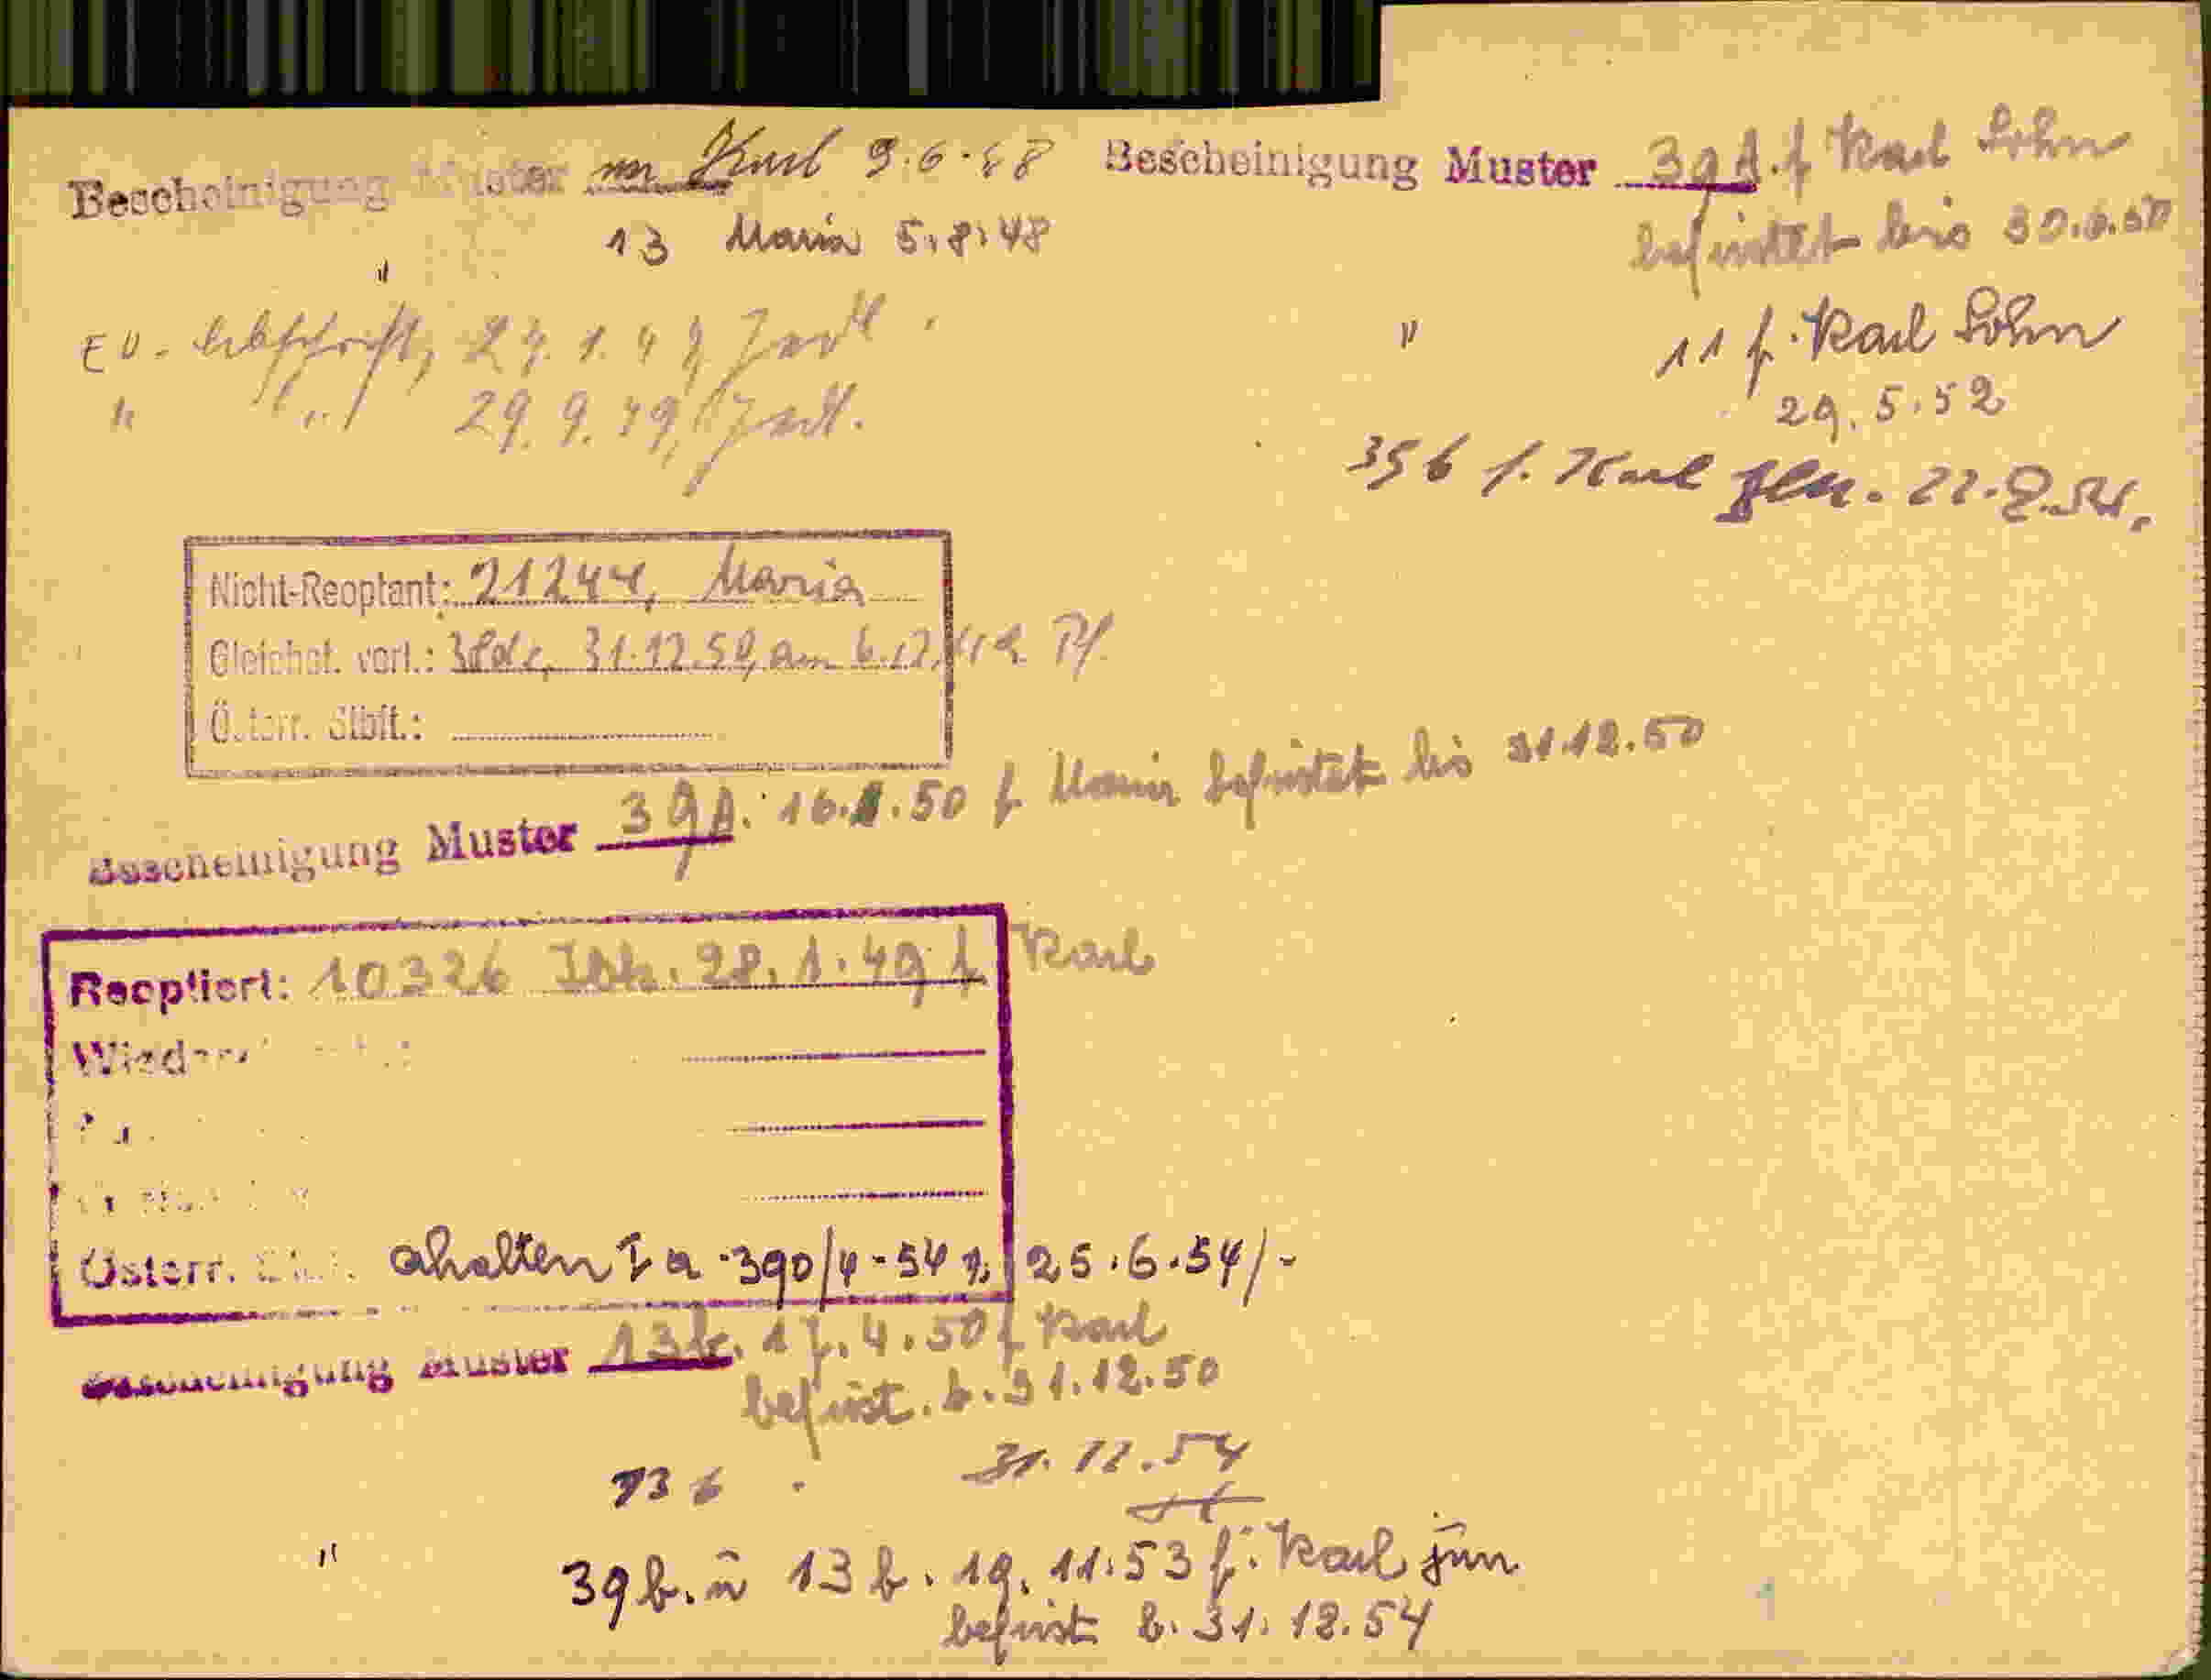 Bescheinigung Muster Karl 9.6.48
13 Maria 5.8.48
"
EU. Abschrift, 27.1.49
" " 29.9.49,
Bescheinigung Muster 39A. f Karl Sohn
befristet bis 30.6.50
" 11 f. Karl Sohn
29.5.52
39b f. Karl jun. 22.9.54.
Nicht-Reoptant: 21244, Maria
Gleichst. vorl.: 31.12.50, am 6.12.49. Pf.
Österr. Stbft.:
Bescheinigung Muster 39A. 16.1.50 f Maria befristet bis 31.12.50
Reoptiert: 10326 Ibk. 28.1.49 f Karl
Österr. erhalten I a -390/4-54 v. 25.6.54/-
Bescheinigung Muster 13b. 17.4.50 f Karl
befrist. b. 31.12.50
13b . 31.12.54
" 39b. u 13b. 19.11.53 f. Karl jun
befrist b. 31.12.54